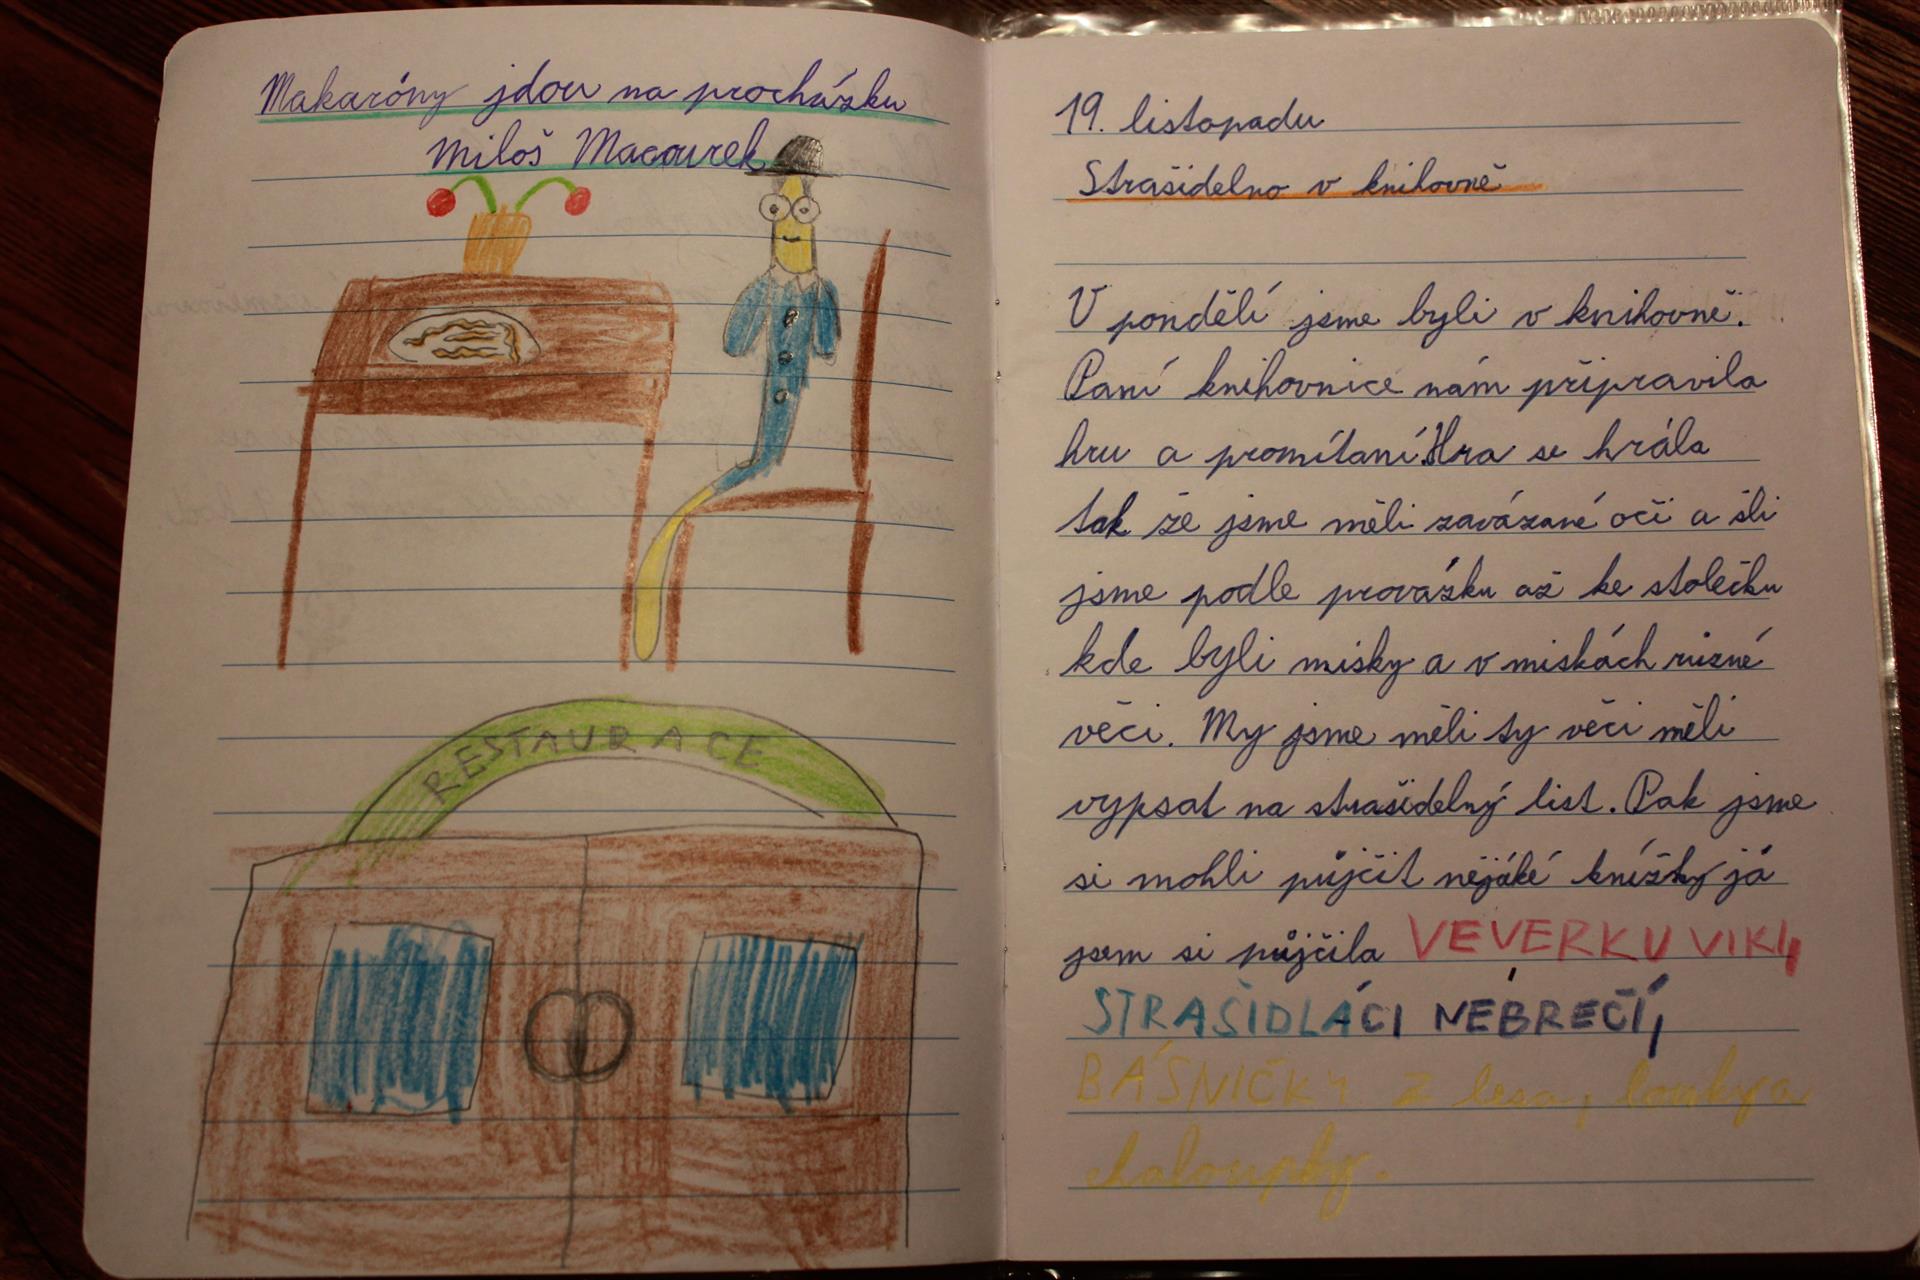 Makaróny jdou na procházku
Miloš Macourek
RESTAURACE
19. listopadu
Strašidelno v knihovně
V pondělí jsme byli v knihovně.
Paní knihovnice nám připravila
hru a promítaní. Hra se hrála
tak že jsme měli zavázané oči a šli
jsme podle provázku až ke stolečku
kde byli misky a v miskách ruzné
věci. My jsme měli ty věci měli
vypsat na strašidelný list. Pak jsme
si mohli půjčit nějáké knížky já
jsem si půjčila VEVERKU VIKI,
STRAŠIDLÁCI NEBREČÍ,
BÁSNIČKY z lesa, louky a
chaloupky.